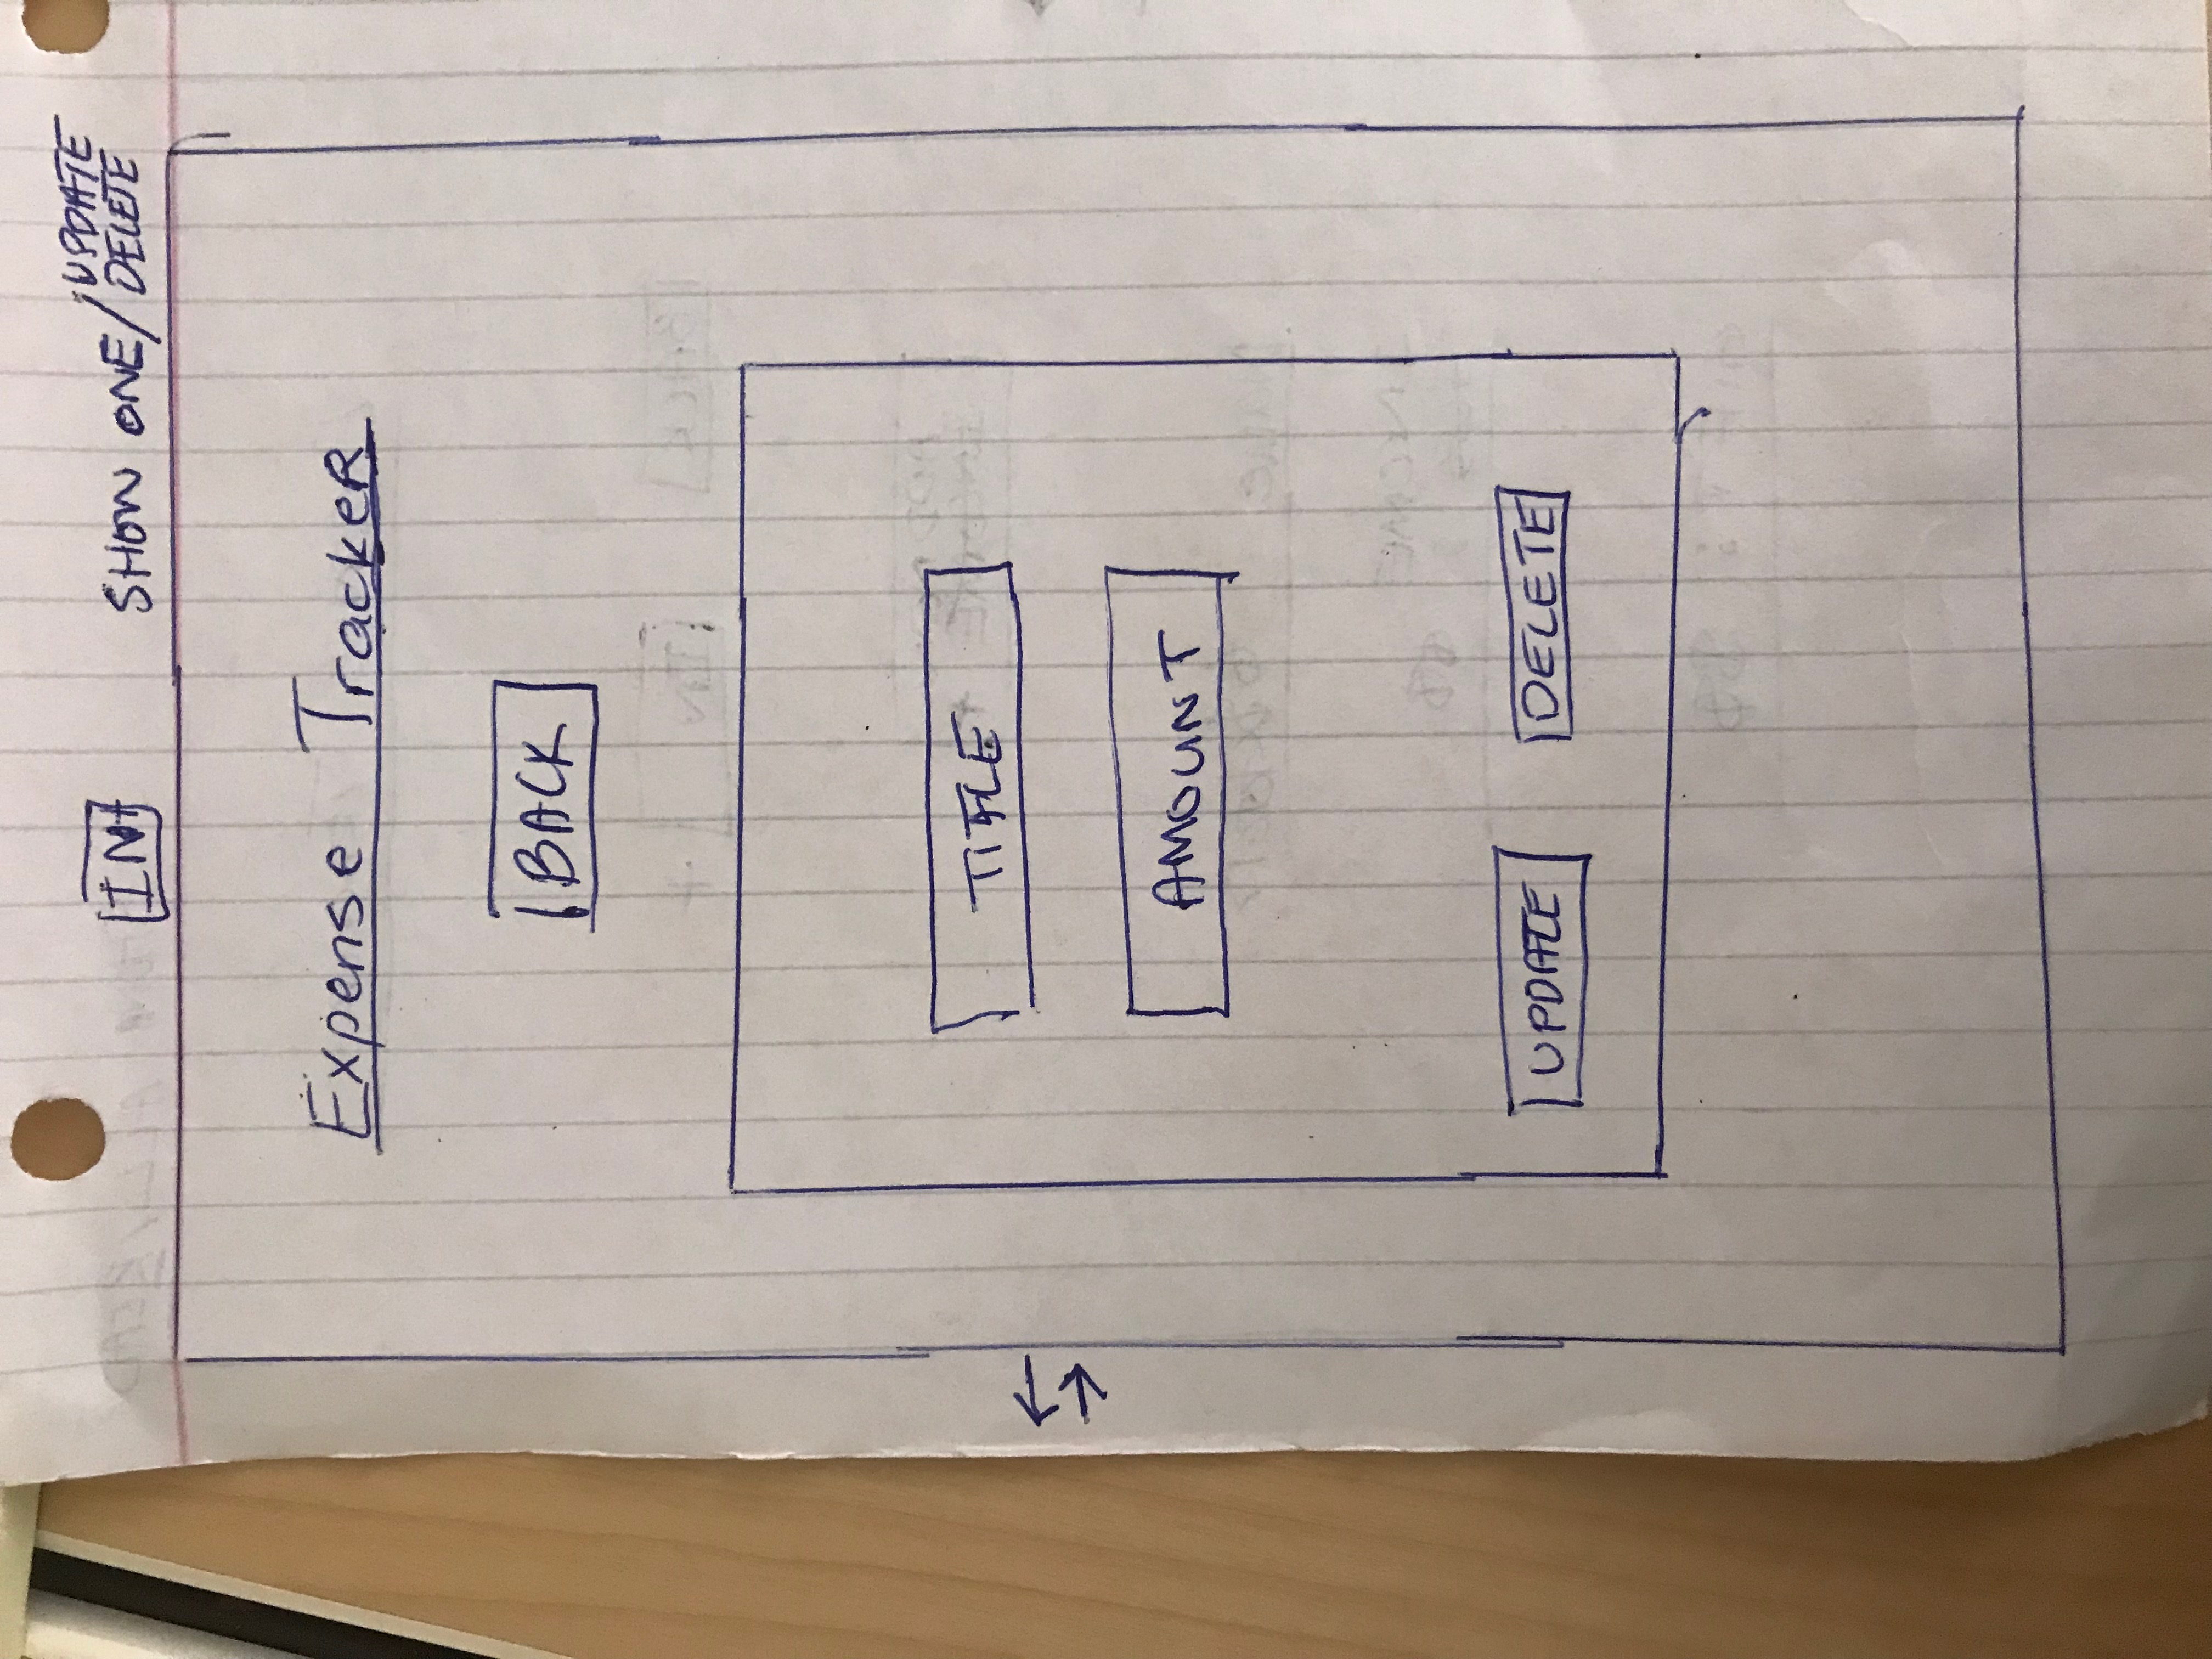 IN
SHOW ONE/UPDATE
DELETE
Expense Tracker
BACK
TITLE
AMOUNT
UPDATE
DELETE